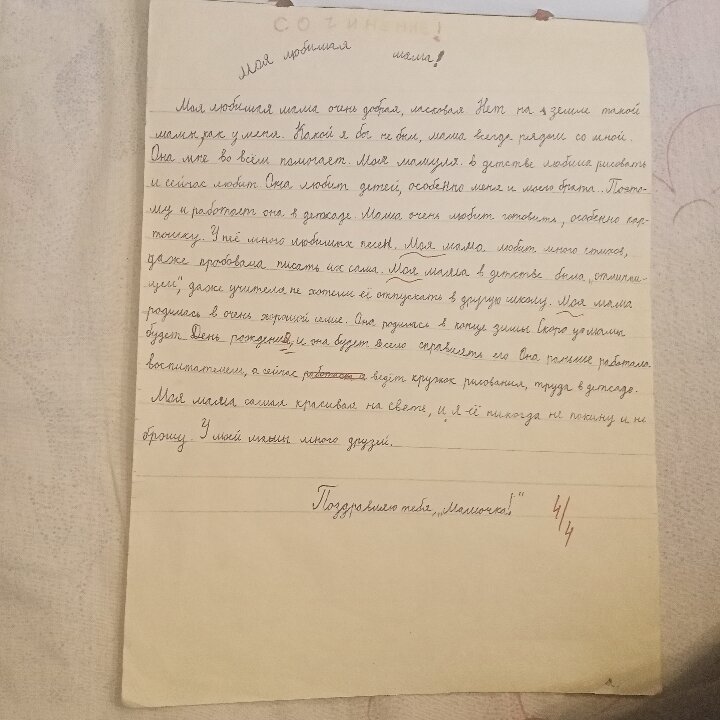 СОЧИНЕНИЕ!
Моя любимая мама!
Моя любимая мама очень добрая, ласковая. Нет на земле такой
мамы, как у меня. Какой я бы не был, мама всегда рядом со мной.
Она мне во всём помогает. Моя мамуля в детстве любила рисовать
и сейчас любит. Она любит детей, особенно меня и моего брата. Поэто-
му и работает она в детсаде. Мама очень любит готовить, особенно кар-
тошку. У неё много любимых песен. Моя мама любит много стихов,
даже пробовала писать их сама. Моя мама в детстве была „отлични-
цей“, даже учителя не хотели её отпускать в другую школу. Моя мама
родилась в очень хорошей семье. Она родилась в конце зимы. Скоро у мамы
будет День рождения, и она будет весело справлять его. Она раньше работала
воспитателем, а сейчас работает а ведёт кружок рисования, труда в детсаде.
Моя мама самая красивая на свете, и я её никогда не покину и не
брошу. У моей мамы много друзей.
Поздравляю тебя, „Мамочка!“
4/4